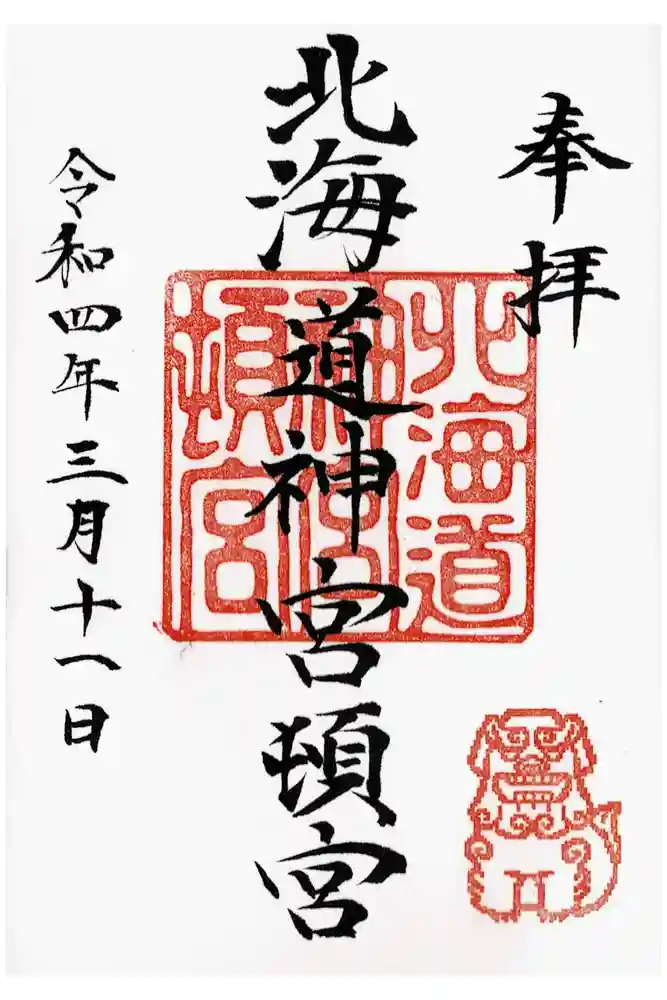 奉拝
北海道神宮頓宮
北海道
神宮
頓宮
令和四年三月十一日